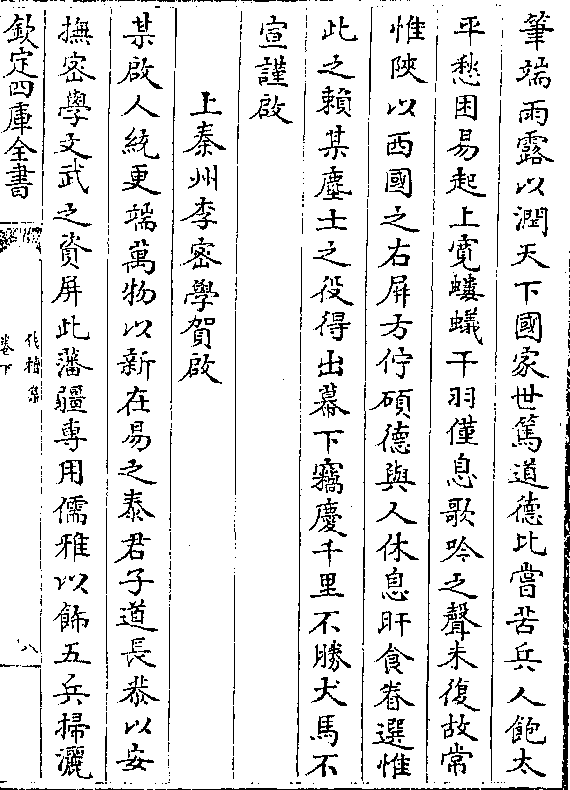 筆端雨露以潤天下國家世篤道德比嘗苦兵人飽太
平愁困易起上寛螻蟻干羽僅息歌吟之聲未復故常
惟陜以西國之右屏方佇碩德與人休息旰食眷選惟
此之賴某塵土之役得出幕下竊慶千里不勝犬馬不
宣謹啟
上秦州李密學賀啟
某啟人統更端萬物以新在易之泰君子道長恭以安
撫密學文武之資屏此藩疆專用儒雅以飾五兵掃灑
欽定四庫全書
卷下
八